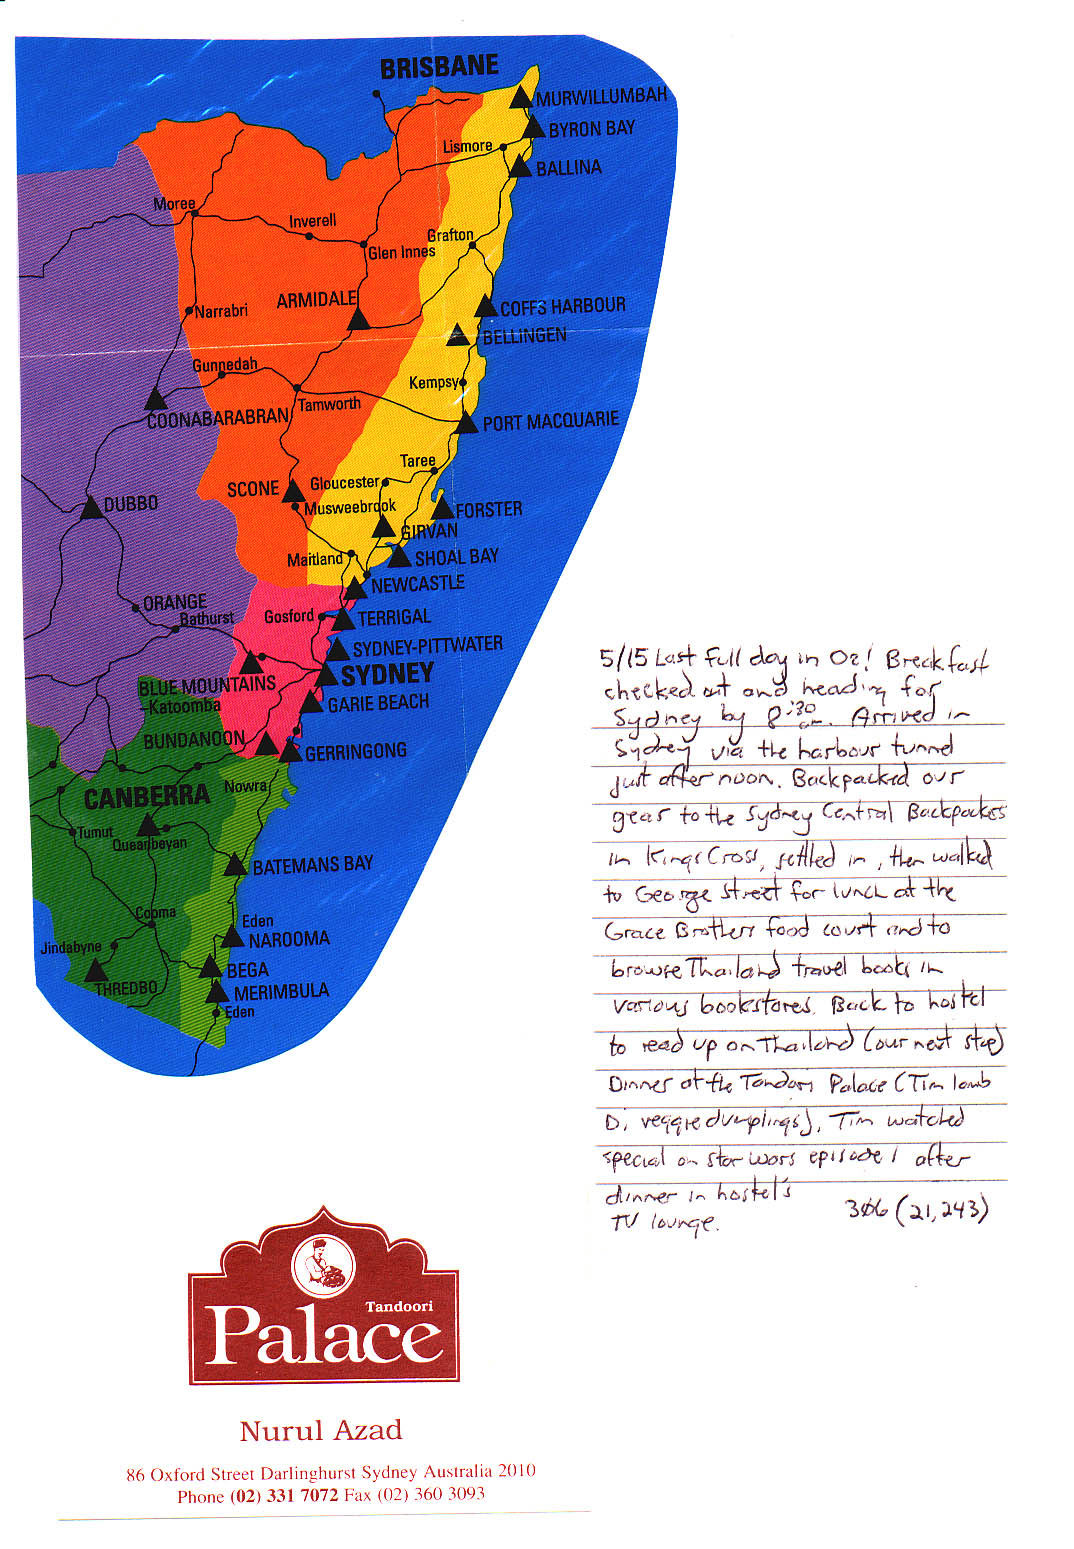 BRISBANE
MURWILLUMBAH
BYRON BAY
Lismore
BALLINA
Moree
Inverell
Grafton
Glen Innes
ARMIDALE
COFFS HARBOUR
Narrabri
BELLINGEN
Gunnedah
Kempsy
Tamworth
COONABARABRAN
PORT MACQUARIE
Taree
SCONE
Gloucester
DUBBO
Musweebrook
FORSTER
GIRVAN
Maitland
SHOAL BAY
NEWCASTLE
ORANGE
Bathurst
Gosford
TERRIGAL
SYDNEY-PITTWATER
SYDNEY
BLUE MOUNTAINS
-Katoomba
GARIE BEACH
BUNDANOON
GERRINGONG
Nowra
CANBERRA
Tumut
Queanbeyan
BATEMANS BAY
Cooma
Eden
NAROOMA
Jindabyne
BEGA
THREDBO
MERIMBULA
Eden
5/15 Last full day in Oz! Breakfast
checked out and heading for
Sydney by 8:30 am. Arrived in
Sydney via the harbour tunnel
just after noon. Backpacked our
gear to the Sydney Central Backpackers
in Kings Cross, settled in, then walked
to George Street for lunch at the
Grace Brothers food court and to
browse Thailand travel books in
various bookstores. Back to hostel
to read up on Thailand (our next stop)
Dinner at the Tandori Palace (Tim lamb
D, veggie dumplings). Tim watched
special on Star Wars episode 1 after
dinner in hostel's
TV lounge.
306 (21,243)
Tandoori
Palace
Nurul Azad
86 Oxford Street Darlinghurst Sydney Australia 2010
Phone (02) 331 7072 Fax (02) 360 3093